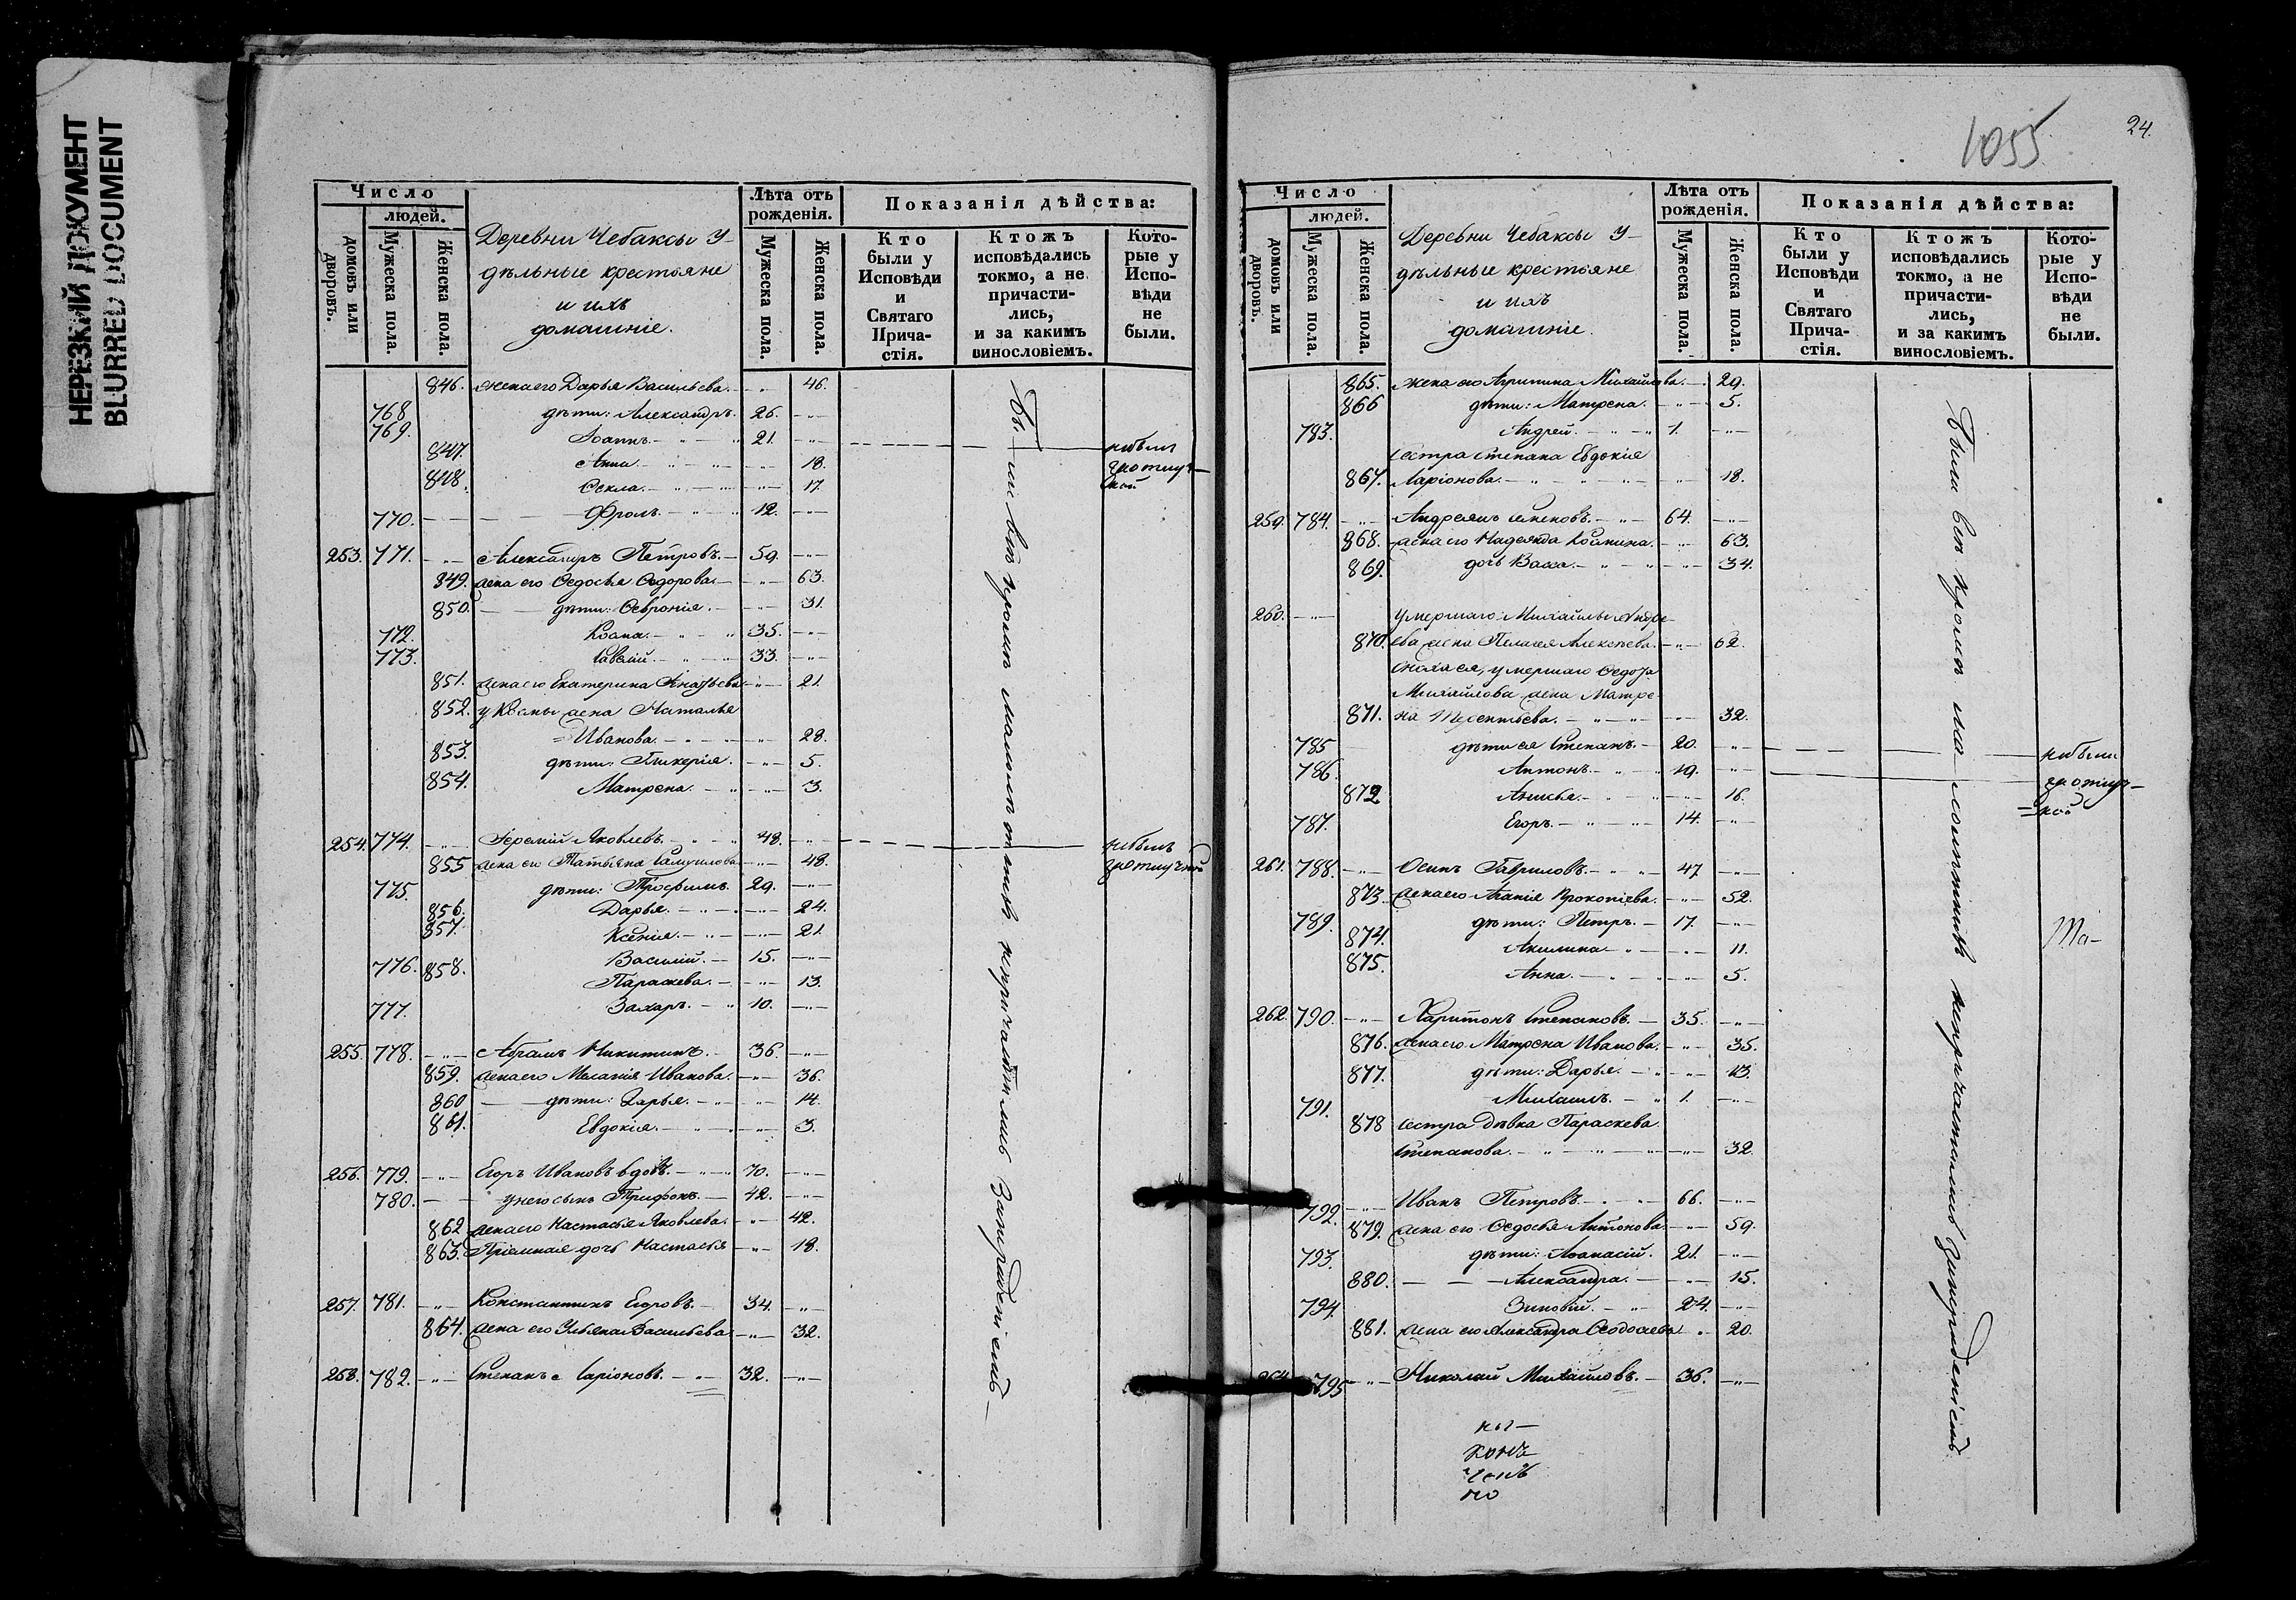 НЕРЕЗКИЙ ДОКУМЕНТ
BLURRED DOCUMENT
Число
людей.
домовъ или дворовъ.
Мужеска пола.
Женска пола.
Деревни Чебаксы У-
дѣльные крестьяне
и ихъ
домашніе.
Лѣта отъ рожденія.
Мужеска пола.
Женска пола.
Показанія дѣйства:
Кто были у Исповѣди и Святаго Причастія.
Ктожъ исповѣдались токмо, а не причастились, и за какимъ винословіемъ.
Которые у Исповѣди не были.
846. жена его Дарья Васильева. 46.
768 дѣти: Александръ. 26.
769. Іоаннъ. 21. небылъ
847. Анна. 18. за отлуч-
848. Ѳекла. 17. кой
770. Фролъ. 12.
253. 771. Александръ Петровъ. 59.
849. жена его Ѳедосья Ѳедорова 63.
850. дѣти: Ѳевронія. 31.
772. Козма. 35.
773. Савелій. 33.
851. жена его Екатерина 21.
852. у Козмы жена Наталья
Иванова. 28.
853. дѣти: Гликерія. 5.
854. Матрена. 3.
254. 774. Іеремій Яковлевъ. 48. небылъ
855 жена его Татьяна Самуилова 48. за отлучкой
775. дѣти: Трофимъ. 29.
856. Дарья. 24.
857. Ксенія. 21.
776. Василій. 15.
858. Параскева. 13.
777. Захаръ. 10.
255. 778. Абрамъ Никитинъ. 36.
859. жена его Меланія Иванова. 36.
860 дѣти: Дарья. 14.
861. Евдокія. 3.
256. 779. Егоръ Ивановъ вдовъ. 70.
780. у него сынъ Трифонъ. 42.
862 жена его Настасья Яковлева. 42.
863. Пріемная дочь Настасья 18.
257. 781. Константинъ Егоровъ. 34.
864. жена его Ульяна Васильева 32.
258. 782. Степанъ Ларіоновъ. 32.
Были всѣ кромѣ малолѣтнихъ, непричастились за нерадѣніемъ
1055
24.
Число
людей.
домовъ или дворовъ.
Мужеска пола.
Женска пола.
Деревни Чебаксы У-
дѣльные крестьяне
и ихъ
домашніе.
Лѣта отъ рожденія.
Мужеска пола.
Женска пола.
Показанія дѣйства:
Кто были у Исповѣди и Святаго Причастія.
Ктожъ исповѣдались токмо, а не причастились, и за какимъ винословіемъ.
Которые у Исповѣди не были.
865. жена его Агрипина Михайлова. 29.
866 дѣти: Матрена. 5.
783. Андрей. 1.
сестра Степана Евдокія
867. Ларіонова. 18.
259. 784. Андреянъ Семеновъ. 64.
868. жена его Надежда Козмина. 63.
869. дочь Васса. 34.
260. умершаго Михайлы Андре-
870. ева жена Пелагея Алексѣева. 62.
сноха ея, умершаго Ѳедора
Михайлова жена Матре-
871. на Терентьева. 32.
785 дѣти ея Степанъ. 20. небыли
786. Антонъ. 19. за отлуч-
872 Анисья. 16. кой
787. Егоръ. 14.
261. 788. Осипъ Гавриловъ. 47
873. жена его Агапія Прокопіева. 52.
789. дѣти: Петръ. 17.
874. Акилина 11.
875. Анна. 5.
262. 790. Харитонъ Степановъ. 35.
876. жена его Матрена Иванова. 35.
877. дѣти: Дарья. 13.
791. Михаилъ. 1.
878 сестра дѣвка Параскева
Степанова. 32.
792. Иванъ Петровъ. 66.
879. жена его Ѳедосья Антонова 59.
793. дѣти: Аѳанасій. 21.
880. Александра. 15.
794. Зиновій. 24.
881. жена его Александра 20.
264. 795 Николай Михайловъ. 36.
Были всѣ кромѣ малолѣтнихъ непричастились за нерадѣніемъ